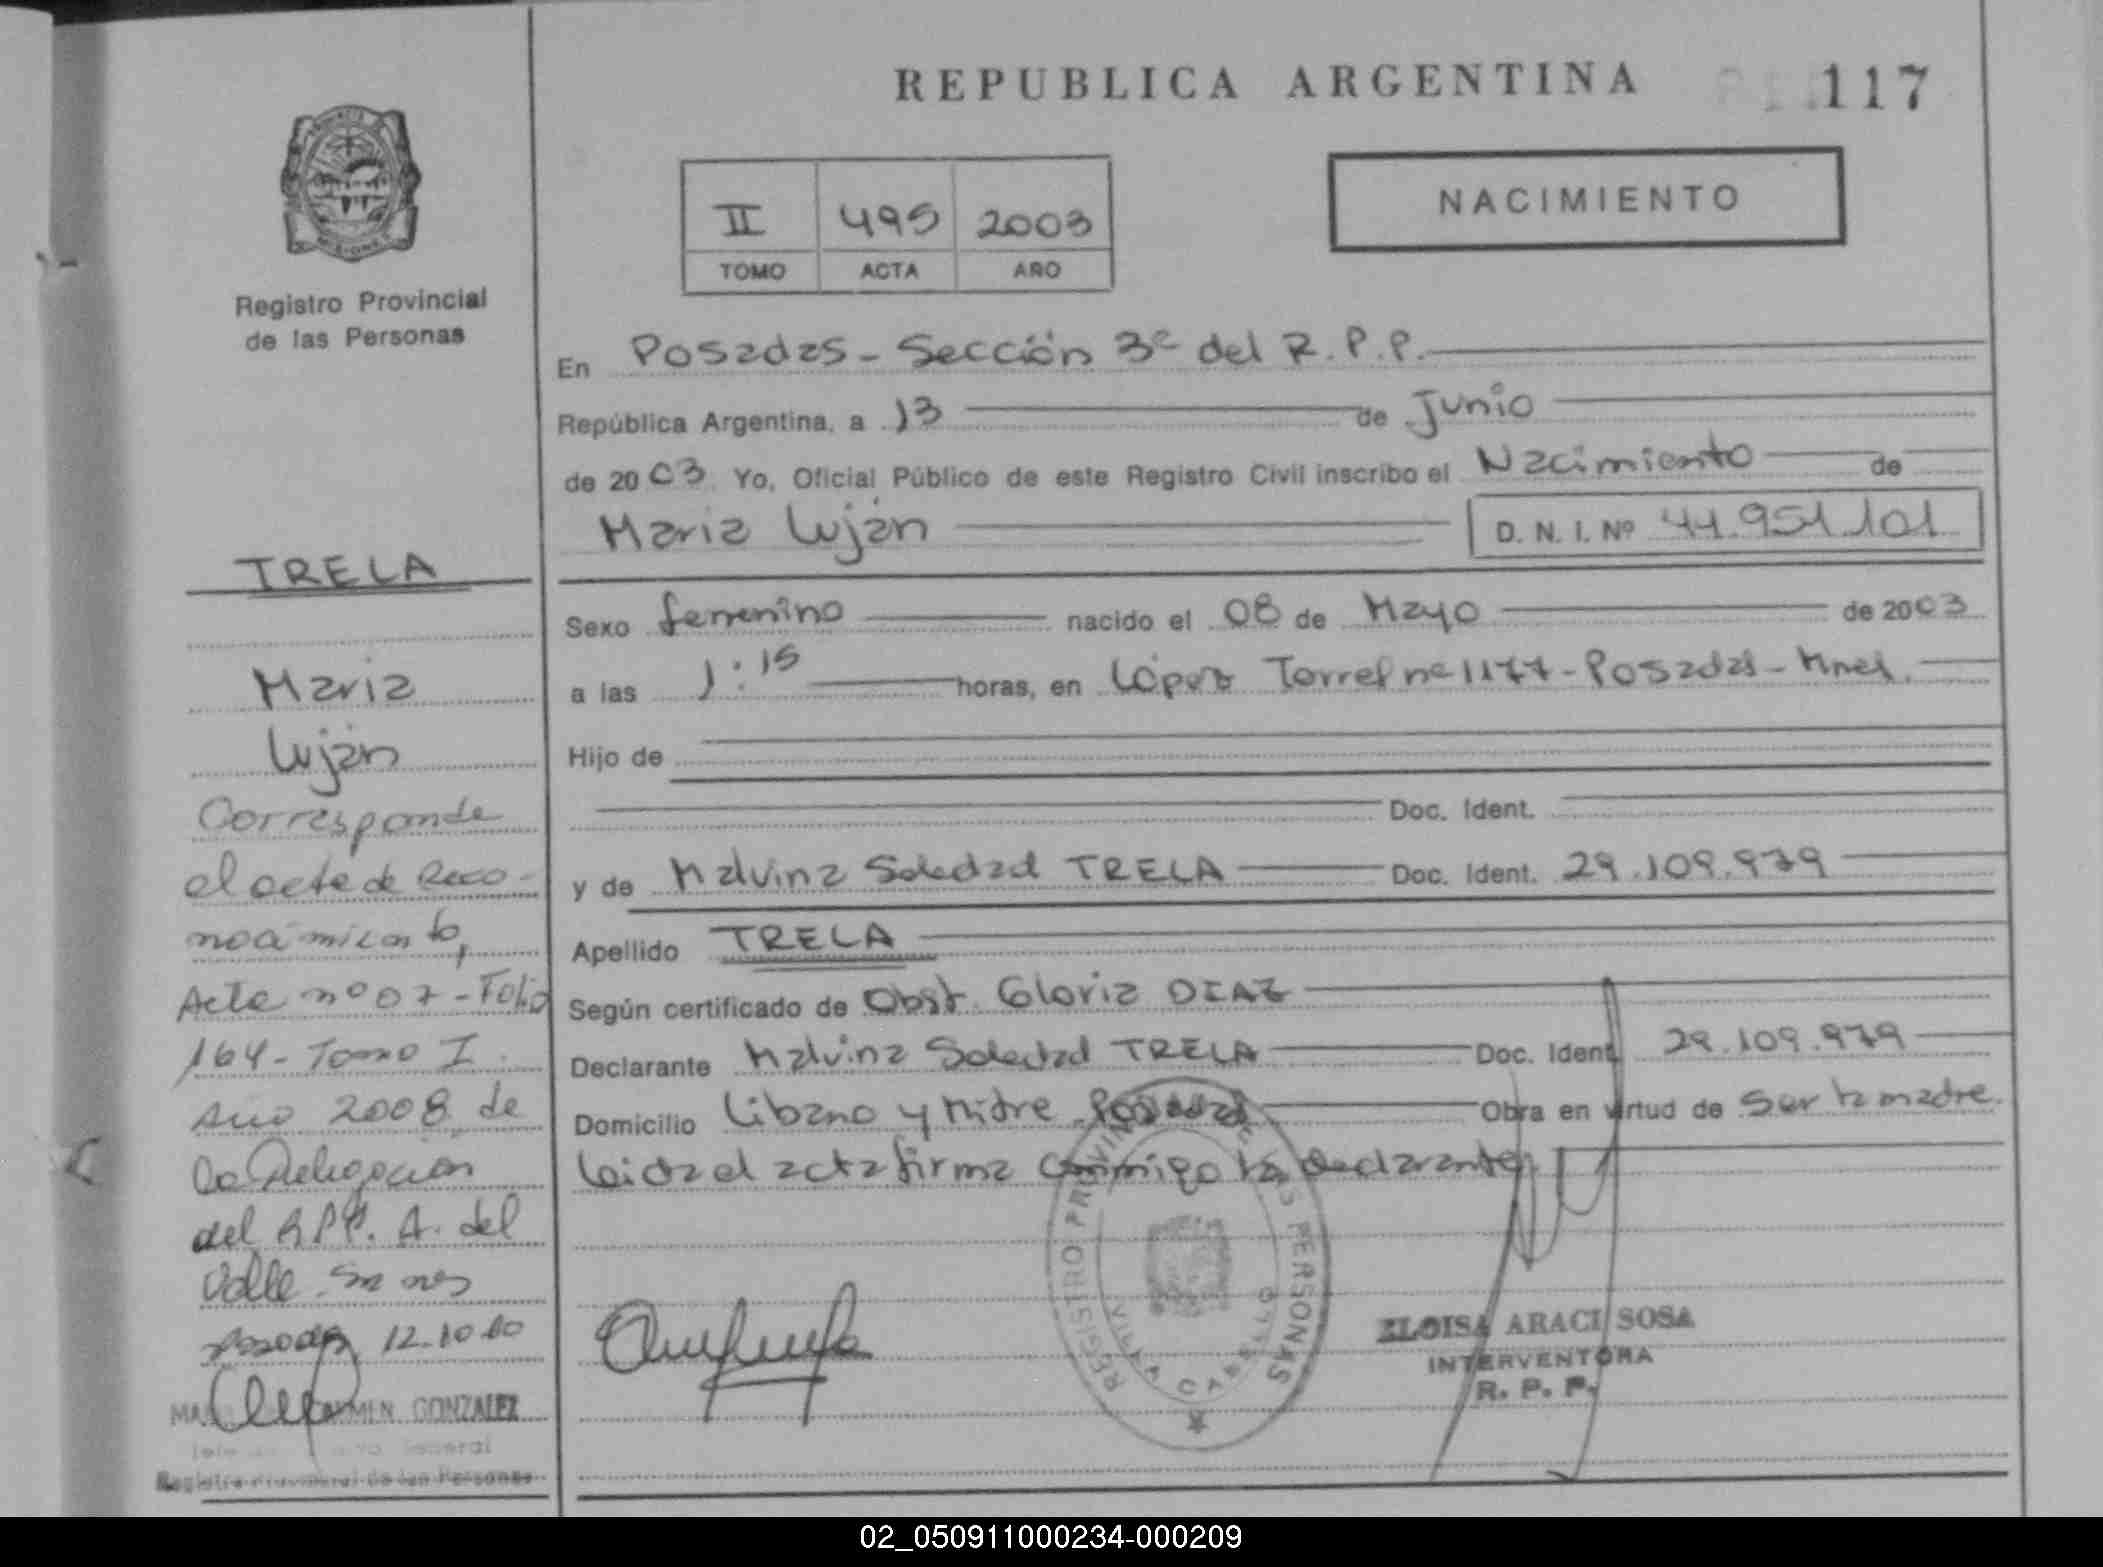 REPUBLICA ARGENTINA
117
NACIMIENTO
II 495 2003
TOMO ACTA AÑO
Registro Provincial
de las Personas
En Posadas - Sección 3ª del R.P.P.
República Argentina, a 13 de Junio
de 2003 Yo, Oficial Público de este Registro Civil inscribo el Nacimiento de
Maria Luján D. N. I. Nº 44.951.101
Sexo femenino nacido el 08 de Mayo de 2003
a las 1:15 horas, en López Torres nº 1177 - Posadas - Mnes.
Hijo de
Doc. Ident.
y de Malvina Soledad TRELA Doc. Ident. 29.109.979
Apellido TRELA
Según certificado de Obst. Gloria DIAZ
Declarante Malvina Soledad TRELA Doc. Ident. 29.109.979
Domicilio Libano y Mitre Posadas Obra en virtud de ser la madre.
Leida el acta firma conmigo la declarante
REGISTRO PROVIN PERSONAS
ELOISA ARACI SOSA
INTERVENTORA
R. P. P.
TRELA
Maria
Luján
Corresponde
el acta de Reco-
nocimiento,
Acta nº 07 - Folio
164 - Tomo I.
Año 2008 de
la Delegación
del R.P.P. A. del
Valle
12.10.10
GONZALEZ
General
Registro Provincial de las Personas
02_050911000234-000209